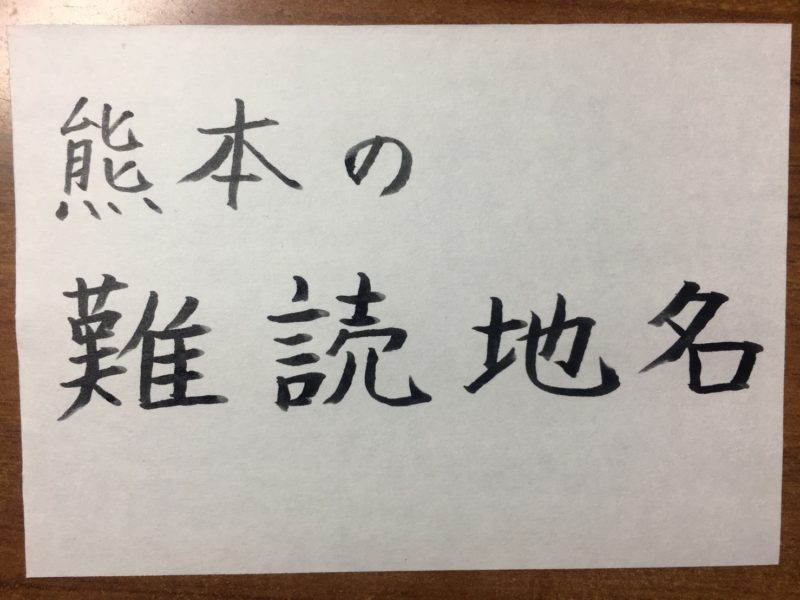 熊本の
難読地名